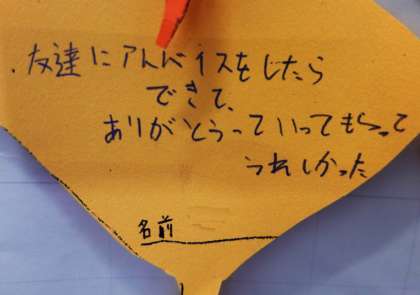 ・友達にアドバイスをしたら
できて、
ありがとうっていってもらって
うれしかった
名前